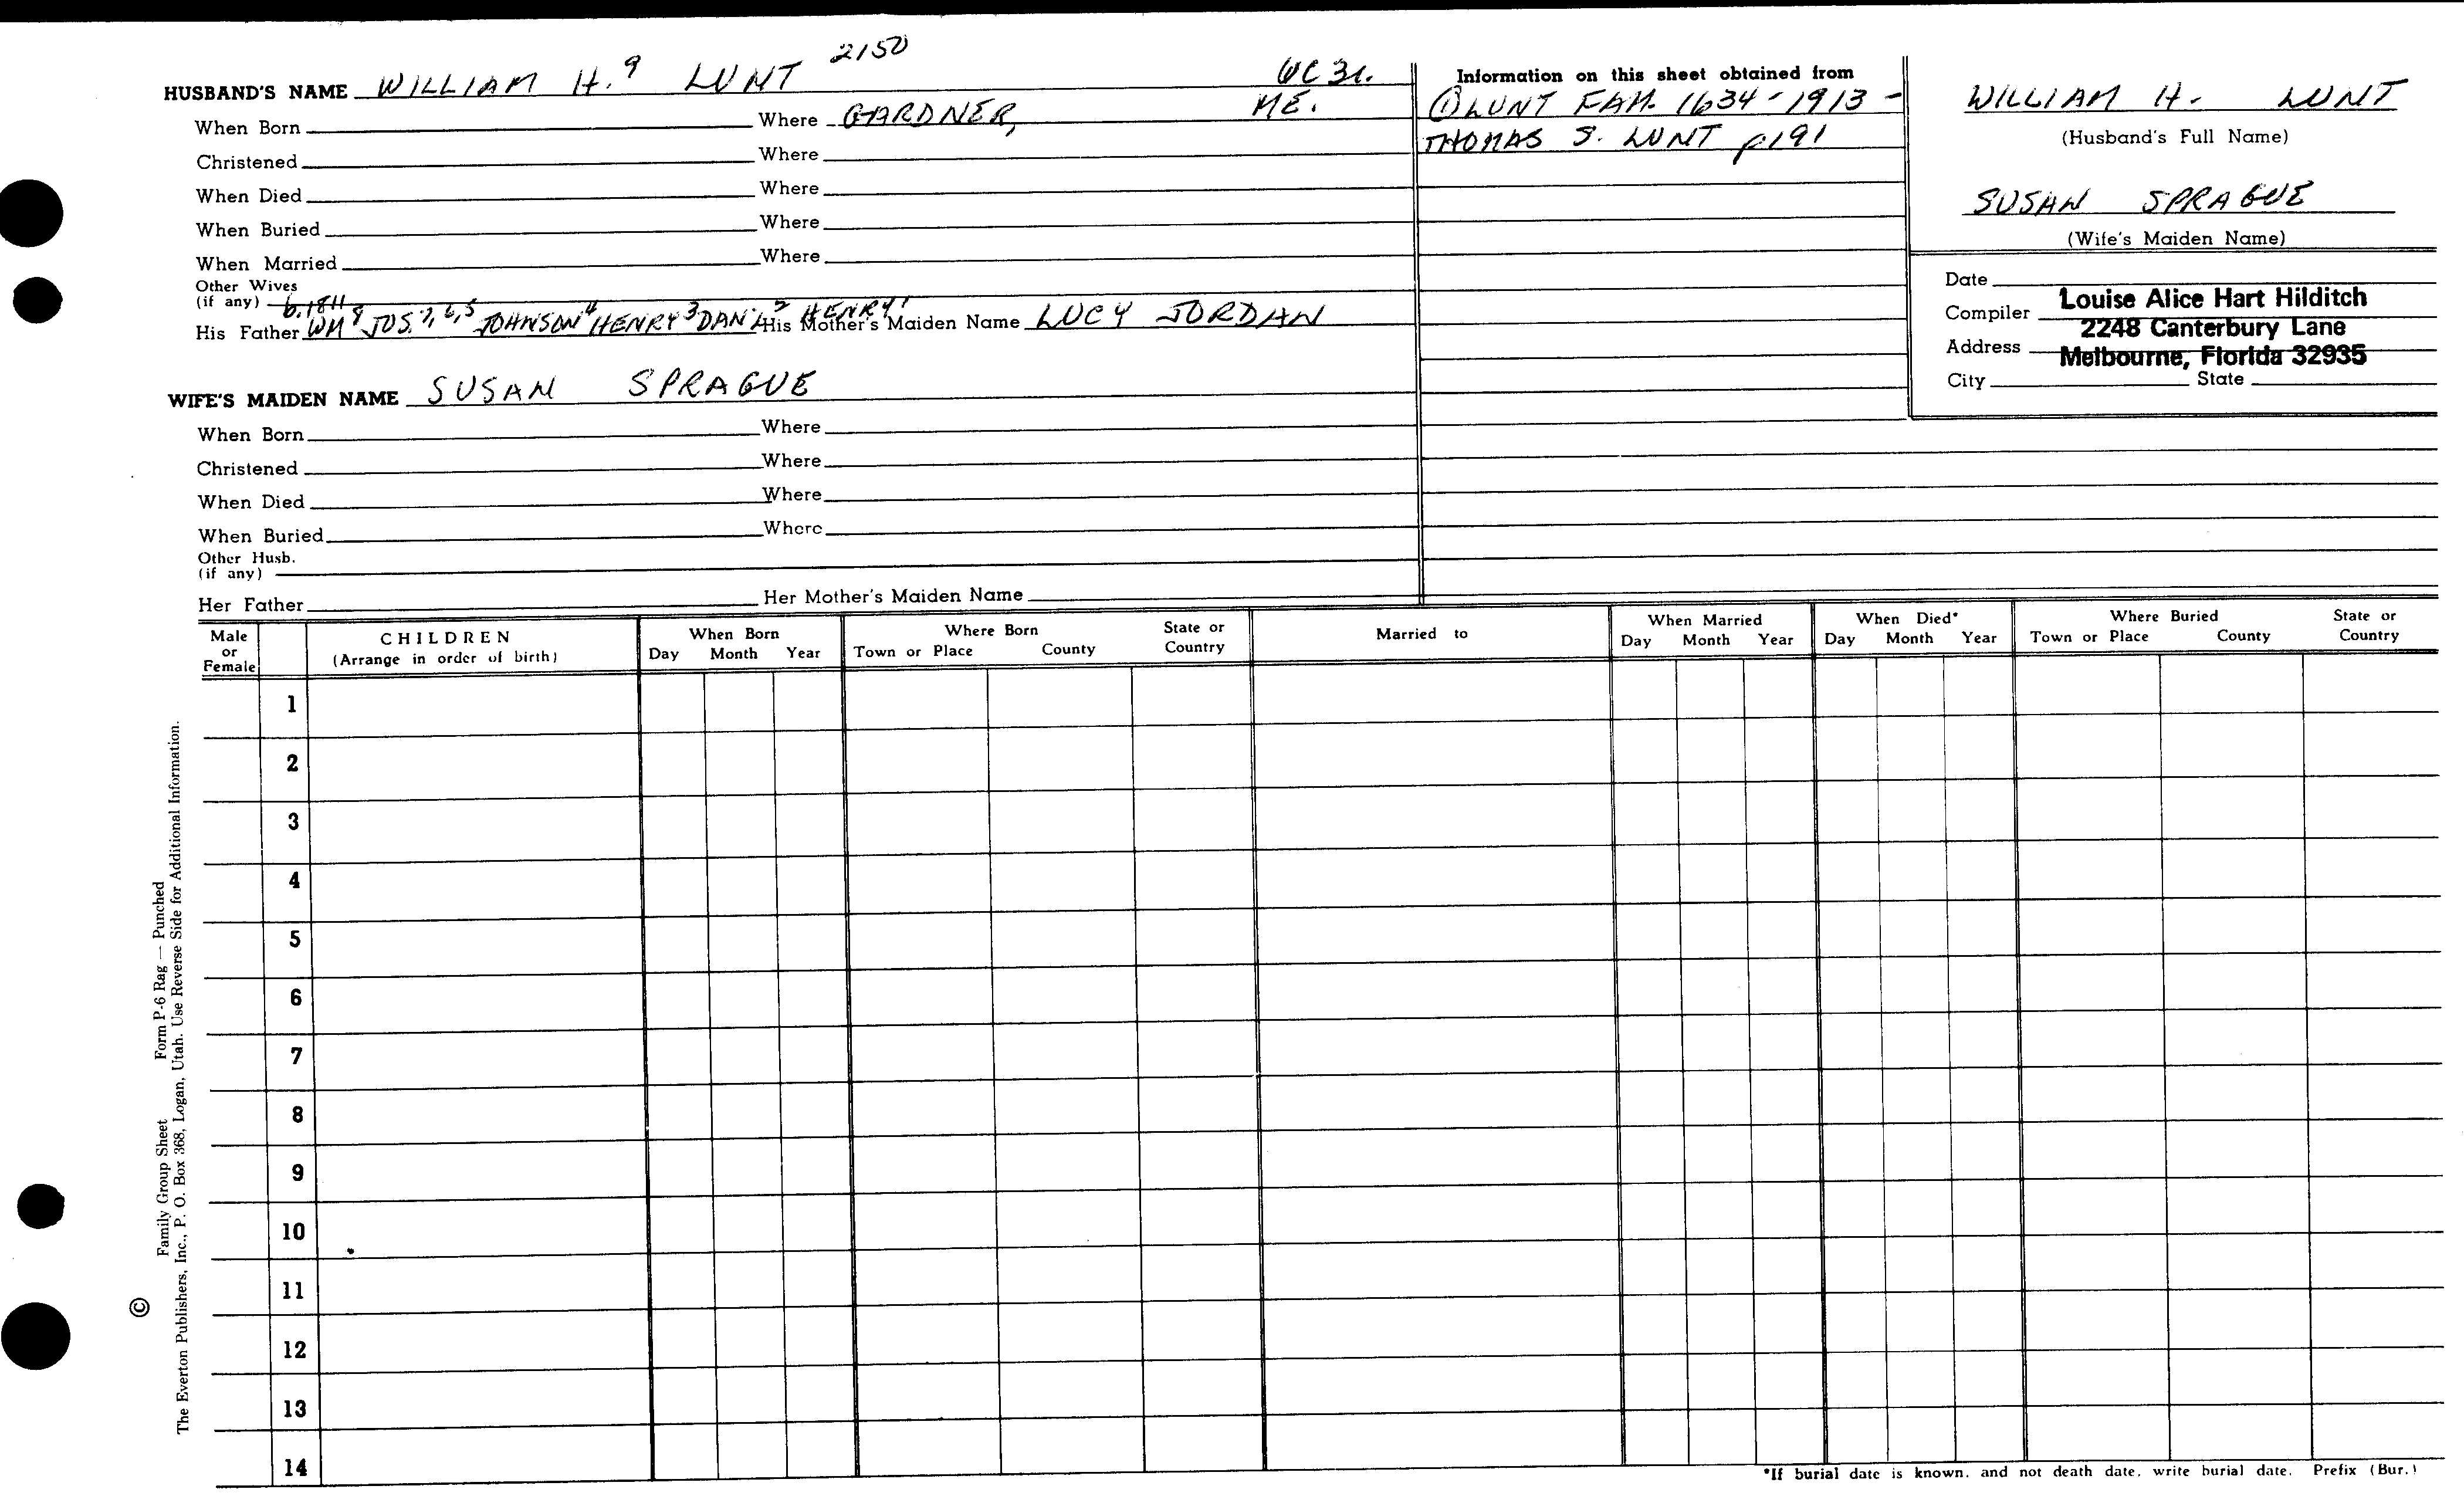 HUSBAND'S NAME WILLIAM H.9 LUNT 2150
When Born Where GARDNER, ME.
Christened Where
When Died Where
When Buried Where
When Married Where
Other Wives
(if any) b. 1811
His Father WM8 JOS.7,6,5 JOHNSON4 HENRY3 DAN'L2 HENRY1 His Mother's Maiden Name LUCY JORDAN
WIFE'S MAIDEN NAME SUSAN SPRAGUE
When Born Where
Christened Where
When Died Where
When Buried Where
Other Husb.
(if any)
Her Father Her Mother's Maiden Name
Information on this sheet obtained from
① LUNT FAM. 1634-1913 -
THOMAS S. LUNT p191
WILLIAM H. LUNT
(Husband's Full Name)
SUSAN SPRAGUE
(Wife's Maiden Name)
Date
Compiler Louise Alice Hart Hilditch
2248 Canterbury Lane
Address Melbourne, Florida 32935
City State
Male or Female
CHILDREN
(Arrange in order of birth)
When Born
Day Month Year
Where Born
Town or Place County State or Country
Married to
When Married
Day Month Year
When Died*
Day Month Year
Where Buried
Town or Place County State or Country
1
2
3
4
5
6
7
8
9
10
11
12
13
14
*If burial date is known, and not death date, write burial date. Prefix (Bur.)
© Family Group Sheet Form P-6 Rag — Punched
The Everton Publishers, Inc., P. O. Box 368, Logan, Utah. Use Reverse Side for Additional Information.